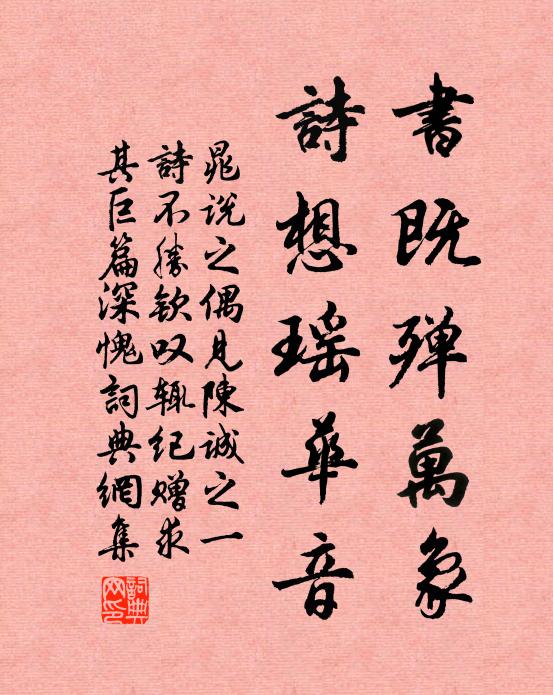 書既殫萬象
詩想瑶華音
晁说之偶見陳诚之一
詩不勝钦叹辄纪赠求
其巨篇深愧詞典網集
詞典网印